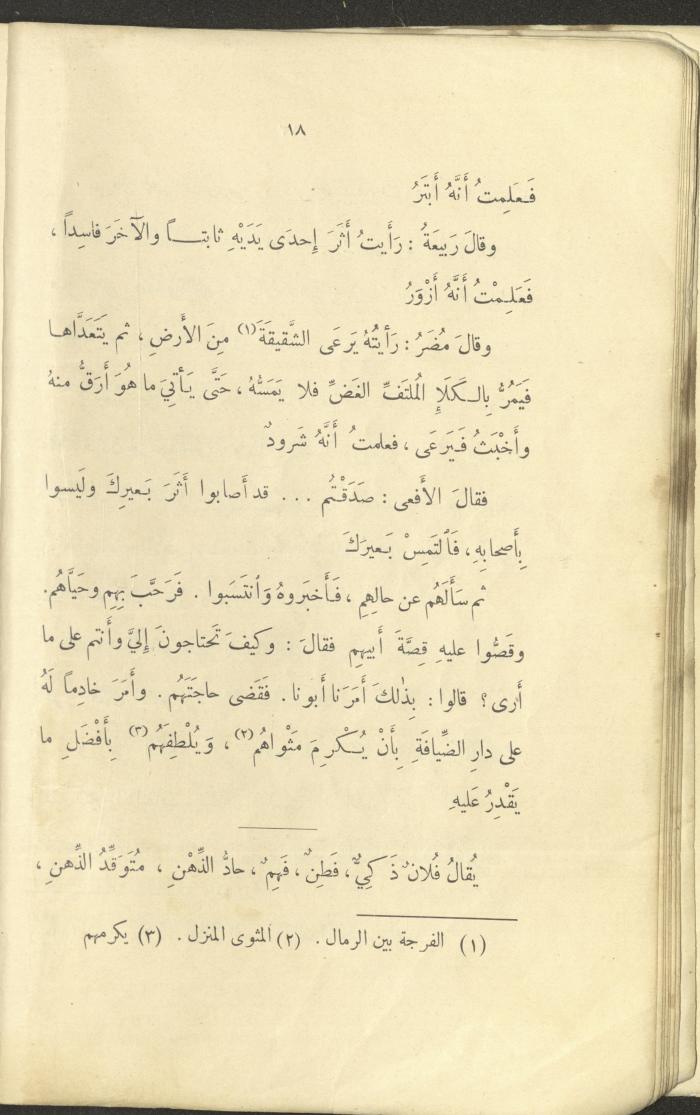 ١٨
فَعَلِمتُ أَنَّهُ أَبتَرُ
وقالَ رَبيعَةُ : رَأَيتُ أَثَرَ إِحدَى يَدَيْهِ ثابتـاً والآخَرَ فاسِداً ،
فَعَلِمْتُ أَنَّهُ أَزْوَرُ
وقالَ مُضَرُ : رَأَيتُهُ يَرعَى الشَّقيقَةَ(١) مِنَ الأَرضِ ، ثم يَتَعَدَّاها
فَيَمُرُّ بِالكَلَإِ المُلتَفِّ الغَضِّ فلا يَمَسُّهُ ، حَتَّى يَأتِيَ ما هُوَ أَرَقُّ منهُ
وأَخْبَثُ فَيَرعَى ، فعلمتُ أَنَّهُ شَرودٌ
فقالَ الأَفعى : صَدَقْتُم ... قد أَصابوا أَثَرَ بَعيرِكَ ولَيسوا
بِأَصحابِهِ ، فَٱلتَمِسْ بَعيرَكَ
ثم سَأَلَهُم عن حالِهِم ، فَأَخبَروهُ وَٱنتَسَبوا . فَرَحَّبَ بِهِم وحَيَّاهُم.
وقَصُّوا عليهِ قِصَّةَ أَبيهِم فقالَ : وكيفَ تَحتاجونَ إِليَّ وأَنتم على ما
أَرى ؟ قالوا : بِذٰلكَ أَمَرَنا أَبونا . فَقَضى حاجَتَهُم . وأَمَرَ خادِماً لَهُ
على دارِ الضِّيافَةِ بِأَنْ يُكْرِمَ مَثْواهُم(٢) ، وَيُلْطِفَهُم(٣) بِأَفْضَلِ ما
يَقْدِرُ عَليهِ
يُقالُ فُلانٌ ذَكِيٌّ ، فَطِنٌ ، فَهِمٌ ، حادُّ الذِّهْنِ ، مُتَوَقِّدُ الذِّهنِ ،
(١) الفرجة بين الرمال . (٢) المثوى المنزل . (٣) يكرمهم